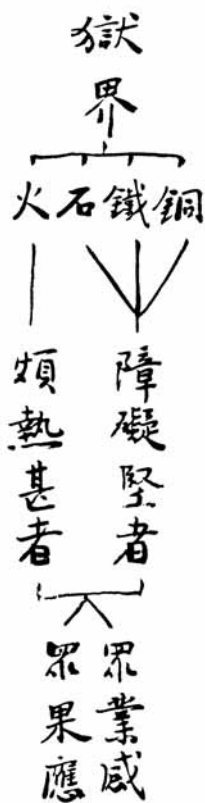 獄界
銅鐵石火
障礙堅者
煩熱甚者
眾業感
眾果應